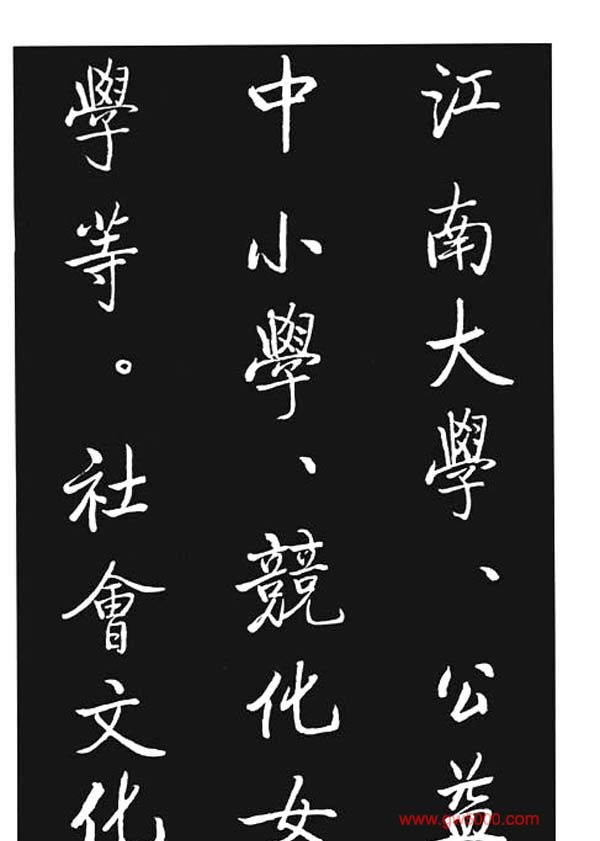 江南大學、公益
中小學、競化女
學等。社會文化
www.gwt000.com